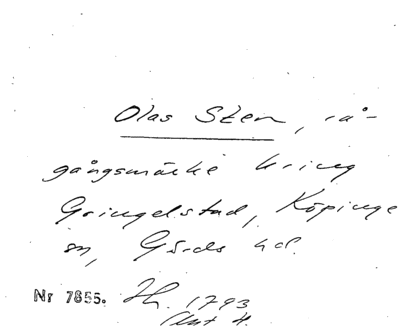 Olas Sten, rå-
gångsmärke kring
Gringelstad, Köpinge
sn, Gärds hd.
Nr 7855. Jh. 1793
Akt 4.